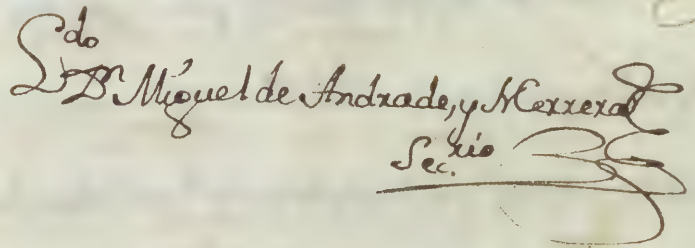 Ldo Dn Miguel de Andrade, y Herrera
Sec.rio